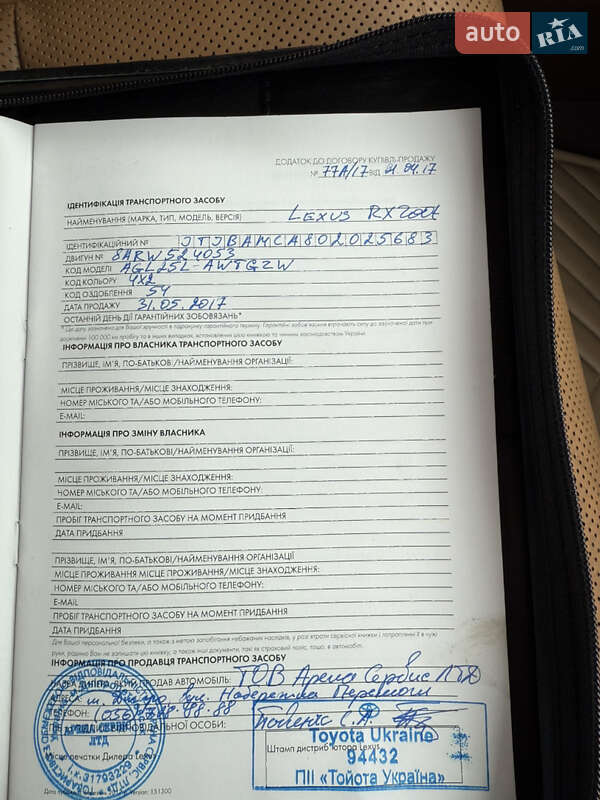 auto RIA .com
ДОДАТОК ДО ДОГОВОРУ КУПІВЛІ-ПРОДАЖУ
№ 77А/17 ВІД 04.17
ІДЕНТИФІКАЦІЯ ТРАНСПОРТНОГО ЗАСОБУ
НАЙМЕНУВАННЯ (МАРКА, ТИП, МОДЕЛЬ, ВЕРСІЯ) LEXUS RX200t
ІДЕНТИФІКАЦІЙНИЙ № JTJBAMCA802025683
ДВИГУН № 8ARW524053
КОД МОДЕЛІ AGL25L-AWTGZW
КОД КОЛЬОРУ 4X2
КОД ОЗДОБЛЕННЯ 54
ДАТА ПРОДАЖУ 31.05.2017
ОСТАННІЙ ДЕНЬ ДІЇ ГАРАНТІЙНИХ ЗОБОВЯЗАНЬ*
ІНФОРМАЦІЯ ПРО ВЛАСНИКА ТРАНСПОРТНОГО ЗАСОБУ
ПРІЗВИЩЕ, ІМ'Я, ПО-БАТЬКОВІ/НАЙМЕНУВАННЯ ОРГАНІЗАЦІЇ:
МІСЦЕ ПРОЖИВАННЯ/МІСЦЕ ЗНАХОДЖЕННЯ:
НОМЕР МІСЬКОГО ТА/АБО МОБІЛЬНОГО ТЕЛЕФОНУ:
E-MAIL:
ІНФОРМАЦІЯ ПРО ЗМІНУ ВЛАСНИКА
ПРІЗВИЩЕ, ІМ'Я, ПО-БАТЬКОВІ/НАЙМЕНУВАННЯ ОРГАНІЗАЦІЇ:
МІСЦЕ ПРОЖИВАННЯ/МІСЦЕ ЗНАХОДЖЕННЯ:
НОМЕР МІСЬКОГО ТА/АБО МОБІЛЬНОГО ТЕЛЕФОНУ:
E-MAIL:
ПРОБІГ ТРАНСПОРТНОГО ЗАСОБУ НА МОМЕНТ ПРИДБАННЯ
ДАТА ПРИДБАННЯ
ПРІЗВИЩЕ, ІМ'Я, ПО-БАТЬКОВІ/НАЙМЕНУВАННЯ ОРГАНІЗАЦІЇ
МІСЦЕ ПРОЖИВАННЯ МІСЦЕ ПРОЖИВАННЯ/МІСЦЕ ЗНАХОДЖЕННЯ:
НОМЕР МІСЬКОГО ТА/АБО МОБІЛЬНОГО ТЕЛЕФОНУ:
E-MAIL
ПРОБІГ ТРАНСПОРТНОГО ЗАСОБУ НА МОМЕНТ ПРИДБАННЯ
ДАТА ПРИДБАННЯ
ІНФОРМАЦІЯ ПРО ПРОДАВЦЯ ТРАНСПОРТНОГО ЗАСОБУ
ДИЛЕРА, ЯКИЙ ПРОДАВ АВТОМОБІЛЬ: ТОВ Арена Сервіс ЛТД
м. Дніпро вул. Набережна Перемоги
ОСОБИ:
Toyota Ukraine
Штамп дистриб'ютора Lexus
94432
ПІІ «Тойота Україна»
Місце печатки Дилера Lexus